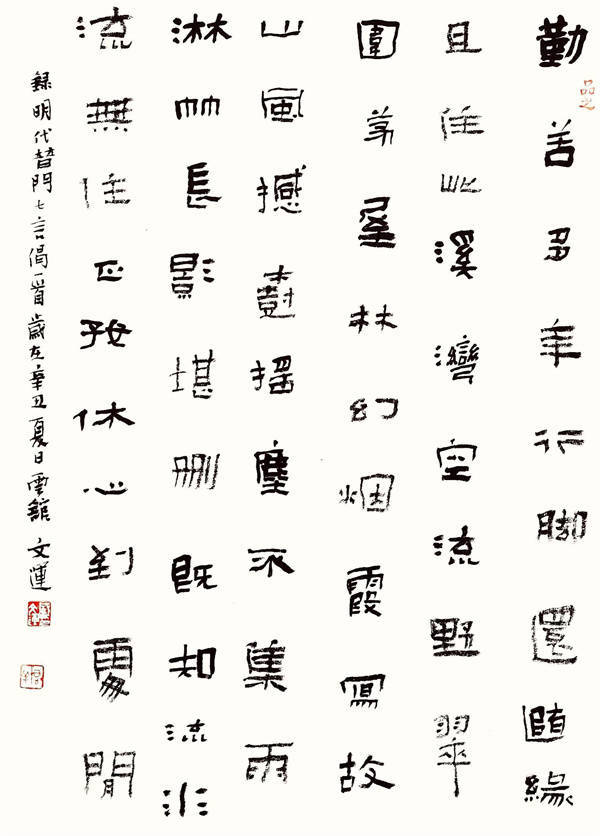 勤苦多年行脚還随緣
且住此溪灣空流野翠
圍茅屋林幻烟霞寫故
山風撼樹摇塵不集雨
淋竹長影堪刪既知流非
流無住正好休心到處閒
録明代替門七言偈一首歲在辛丑夏日雲館文運